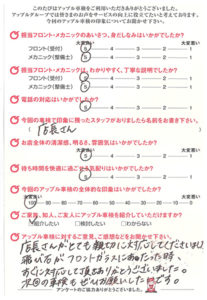 このたびはアップル車検をご利用いただきありがとうございました。
アップルグループでは皆さまのお声をサービスの向上に役立てたいと考えております。
今回のアップル車検の印象についてお聞かせ下さい。
担当フロント・メカニックのあいさつ、身だしなみはいかがでしたか？
大変良い 大変悪い
フロント（受付） 5 4 3 2 1
メカニック（整備士） 5 4 3 2 1
担当フロント・メカニックは、わかりやすく、丁寧な説明でしたか？
大変良い 大変悪い
フロント（受付） 5 4 3 2 1
メカニック（整備士） 5 4 3 2 1
電話の対応はいかがでしたか？
大変良い 大変悪い
5 4 3 2 1
今回の車検で印象に残ったスタッフがおりましたら名前をお書き下さい。
店長さん
お店全体の清潔感、明るさ、雰囲気はいかがでしたか？
大変良い 大変悪い
5 4 3 2 1
待ち時間を快適に過ごせる気配りはいかがでしたか？
大変良い 大変悪い
5 4 3 2 1
今回のアップル車検の全体的な印象はいかがでしたか？
大変良い 大変悪い
100 90 80 70 60 50 40 30 20 10 0
ご家族、知人、ご友人にアップル車検を紹介していただけますか？
紹介したい 検討したい わからない
アップル車検に対するご意見、ご感想などをお聞かせ下さい。
店長さんがとても親切に対応してくださいました
飛び石がフロントガラスにあたった時、
すぐに対応して頂きありがとうございました。
次回の車検もぜひお願いしたいです。
アンケートのご協力ありがとうございました。